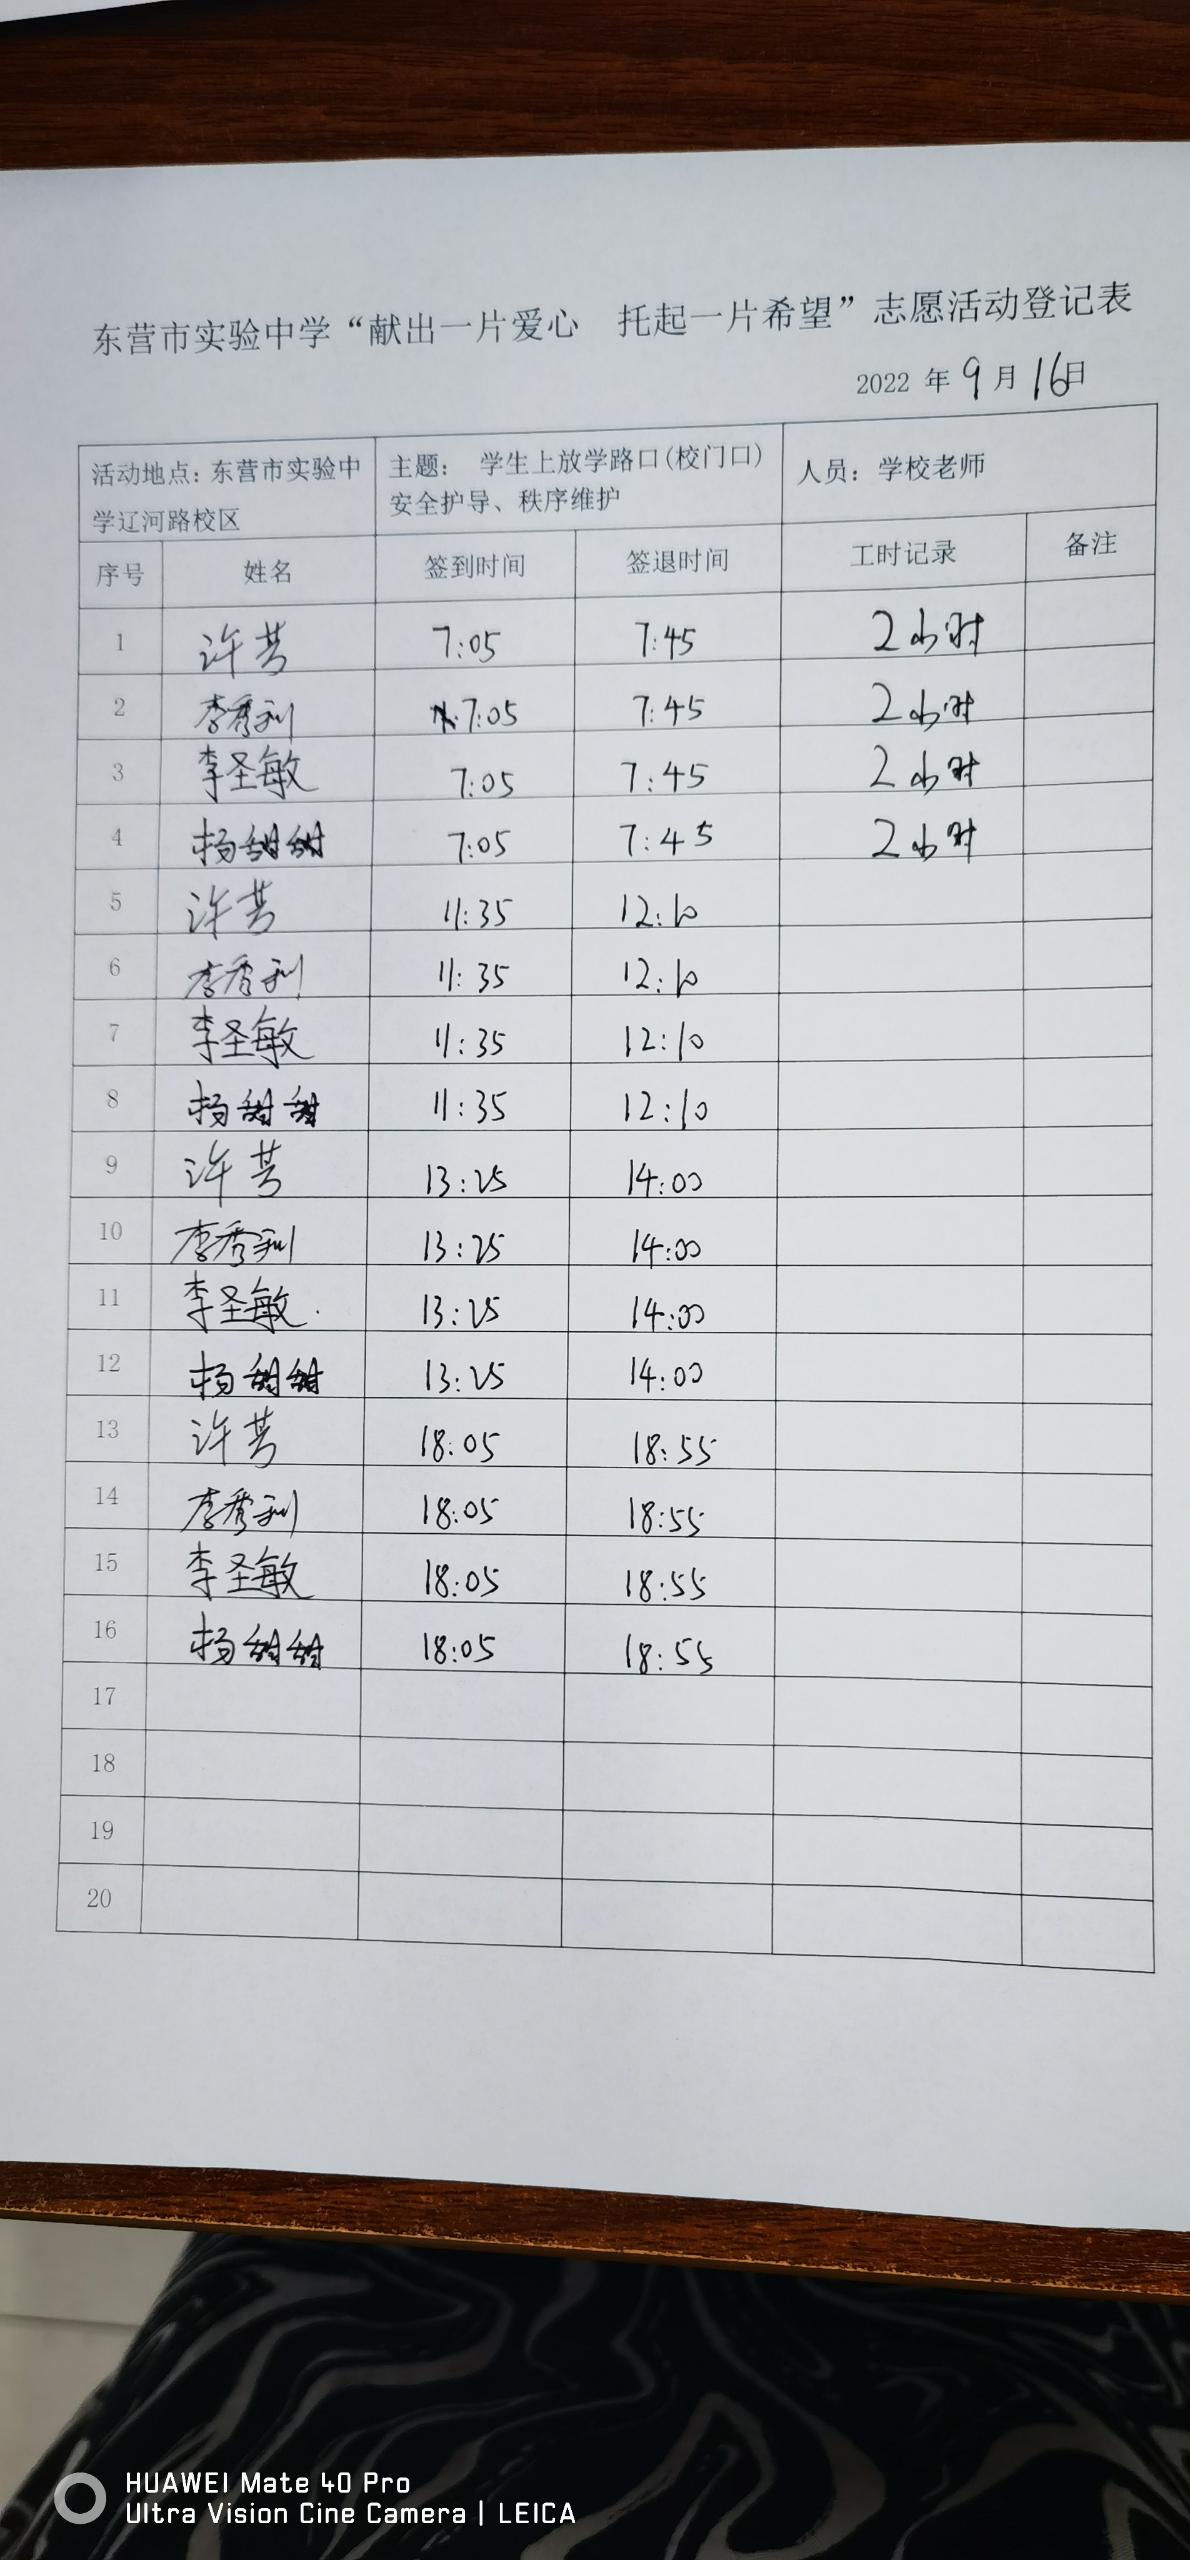 东营市实验中学“献出一片爱心 托起一片希望”志愿活动登记表
2022 年 9 月 16日
活动地点：东营市实验中学辽河路校区 主题： 学生上放学路口(校门口)安全护导、秩序维护 人员：学校老师
序号 姓名 签到时间 签退时间 工时记录 备注
1 许芳 7:05 7:45 2小时
2 李秀利 7:05 7:45 2小时
3 李圣敏 7:05 7:45 2小时
4 杨甜甜 7:05 7:45 2小时
5 许芳 11:35 12:10
6 李秀利 11:35 12:10
7 李圣敏 11:35 12:10
8 杨甜甜 11:35 12:10
9 许芳 13:25 14:00
10 李秀利 13:25 14:00
11 李圣敏 13:25 14:00
12 杨甜甜 13:25 14:00
13 许芳 18:05 18:55
14 李秀利 18:05 18:55
15 李圣敏 18:05 18:55
16 杨甜甜 18:05 18:55
17
18
19
20
HUAWEI Mate 40 Pro
Ultra Vision Cine Camera | LEICA